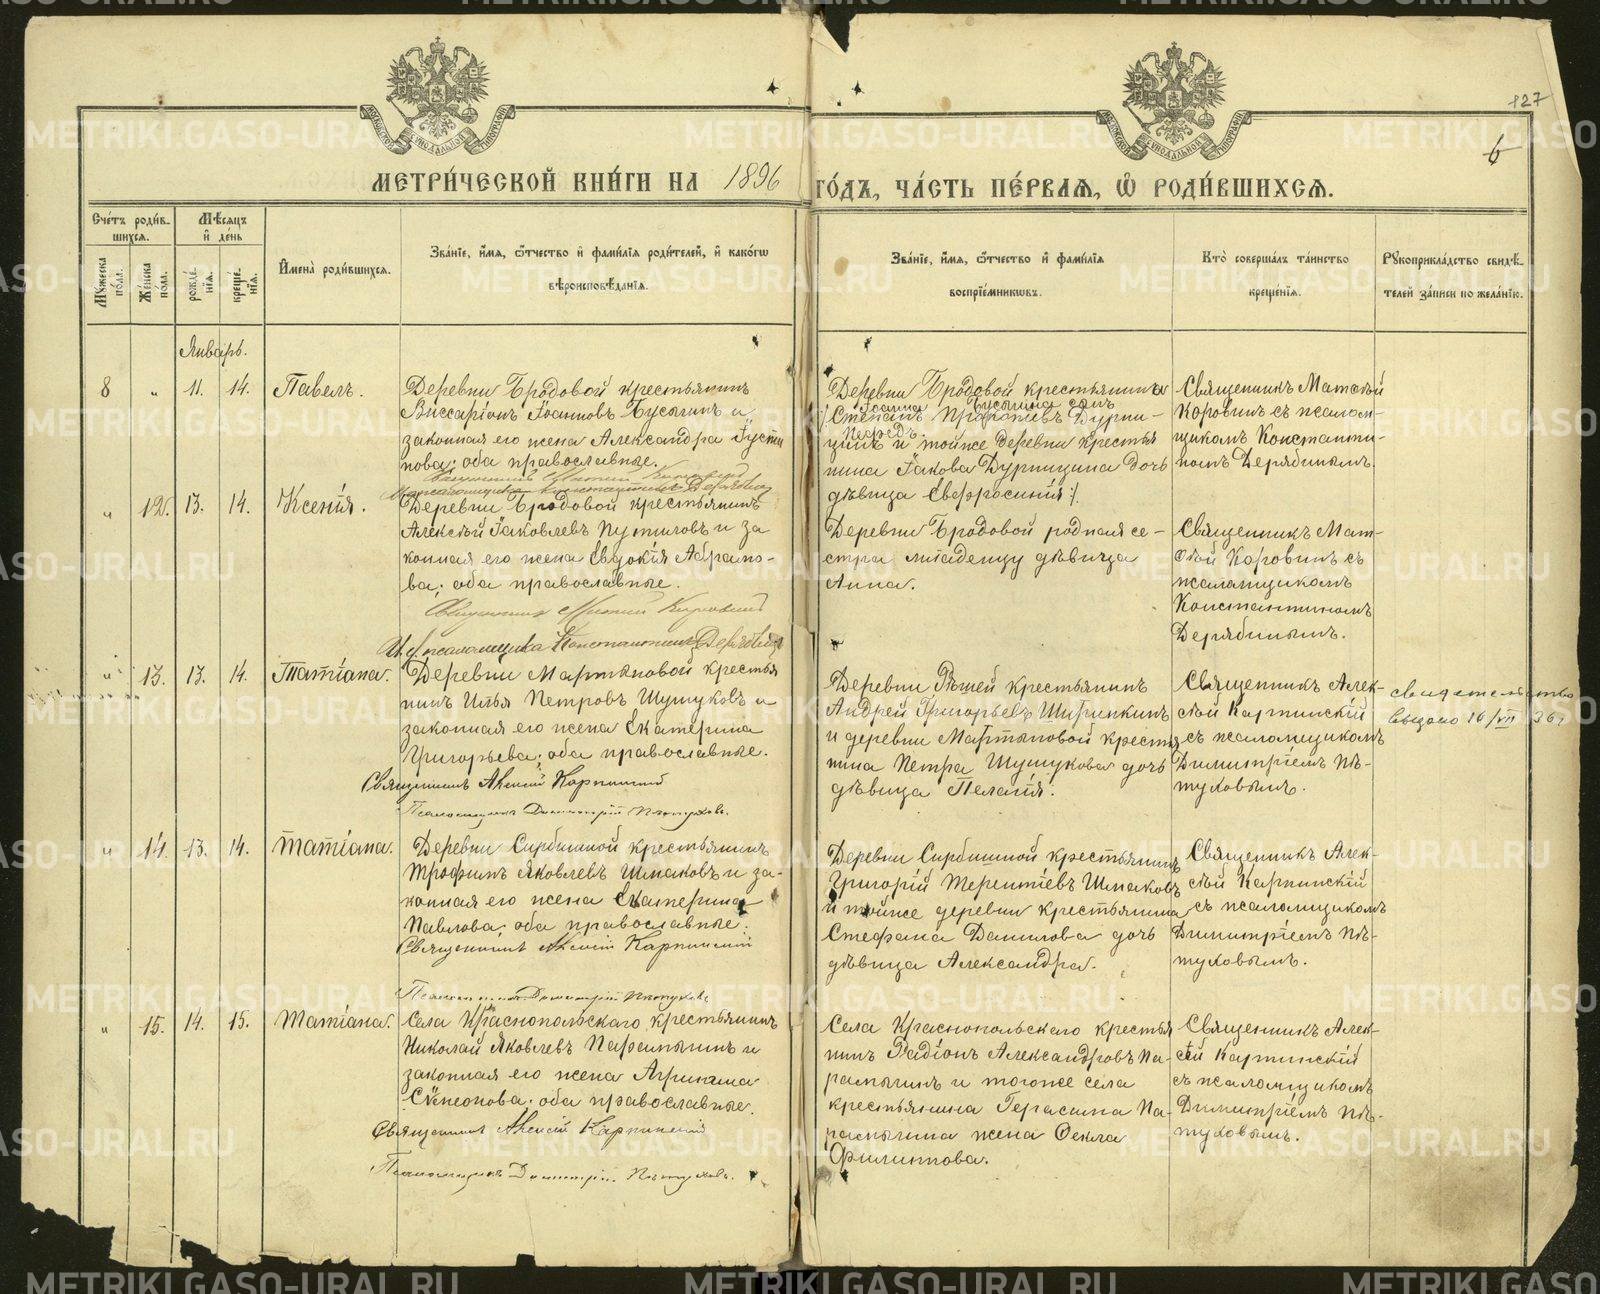 127
6
МОСКОВСКОЙ СѴНОДАЛЬНОЙ ТИПОГРАФІИ
МОСКОВСКОЙ СѴНОДАЛЬНОЙ ТИПОГРАФІИ
МЕТРИ́ЧЕСКОЙ КНИ́ГИ НА 1896 ГО́ДЪ, ЧА́СТЬ ПЕ́РВАЯ, Ѡ҆ РОДИ́ВШИХСЯ.
Сче́тъ роди́в-
шихся.
Му́жеска по́ла.
Же́нска по́ла.
Мѣ́сяцъ
и҆ де́нь
рожде́-
нїя.
креще́-
нїя.
И҆мена̀ роди́вшихся.
Зва́нїе, и҆́мя, ѻ҆́тчество и҆ фами́лїя роди́телей, и҆ како́гѡ
вѣроисповѣ́данїя.
Зва́нїе, и҆́мя, ѻ҆́тчество и҆ фами́лїя
воспрїе́мникѡвъ.
Кто̀ соверша́лъ та́инство
креще́нїя.
Рꙋкоприкла́дство свидѣ́-
телей за́писи по жела́нїю.
Январь.
8 „ 11. 14. Павелъ.
Деревни Бродовой крестьянинъ
Виссаріонъ Іоанновъ Бусыгин и
законная его жена Александра Іусти
нова; оба православные.
Деревни Бродовой крестьянинъ
Іоанна Бусыгина сынъ
Стефанъ Прокопьевъ Дурни-
цинъ и тойже деревни крестья
нина Іакова Дурницина дочь
дѣвица Евфросинія/.
Священникъ Матѳѣй
Коровинъ съ псалом-
щикомъ Константи-
номъ Дерябинымъ.
„ 12. 13. 14. Ксенія.
Деревни Бродовой крестьянинъ
Алексѣй Іаковлевъ Путиловъ и за
конная его жена Евдокія Абрамо-
ва; оба православные.
И. д. псаломщика Константинъ Дерябинъ
Деревни Бродовой родная се-
стра младенцу дѣвица
Анна.
Священникъ Мат-
ѳѣй Коровинъ съ
псаломщикомъ
Константиномъ
Дерябинымъ.
„ 13. 13. 14. Татіана.
Деревни Мартыновой крестья
нинъ Илья Петровъ Шутуковъ и
законная его жена Екатерина
Григорьева; оба православные.
Священникъ Алексій Карпинскій
Псаломщикъ Димитрій Пѣтуховъ.
Деревни Рѣшей крестьянинъ
Андрей Григорьевъ Ширинкинъ
и деревни Мартыновой крестья
нина Петра Шутукова дочь
дѣвица Пелагія.
Священникъ Алек-
сѣй Карпинскій
съ псаломщикомъ
Димитріемъ Пѣ-
туховымъ.
свидетельство
выдано 16/VII 36г
„ 14. 13. 14. Татіана.
Деревни Сарбишной крестьянинъ
Трофимъ Яковлевъ Шмаковъ и за-
конная его жена Екатерина
Павлова; оба православные.
Священникъ Алексій Карпинскій
Псаломщикъ Димитрій Пѣтуховъ
Деревни Сарбишной крестьянинъ
Григорій Терентіевъ Шмаковъ
и тойже деревни крестьянина
Стефана Данилова дочь
дѣвица Александра.
Священникъ Алек-
сѣй Карпинскій
съ псаломщикомъ
Димитріемъ Пѣ-
туховымъ.
„ 15. 14. 15. Татіана.
Села Краснопольскаго крестьянинъ
Николай Яковлевъ Парамыгинъ и
законная его жена Агрипина
Сѵмеонова; оба православные.
Священникъ Алексій Карпинскій
Псаломщикъ Димитрій Пѣтуховъ.
Села Краснопольскаго крестья
нинъ Радіонъ Александровъ Па-
рамыгинъ и тогоже села
крестьянина Герасима Па-
рамыгина жена Ѳекла
Филиппова.
Священникъ Алек-
сѣй Карпинскій
съ псаломщикомъ
Димитріемъ Пѣ-
туховымъ.
METRIKI.GASO-URAL.RU